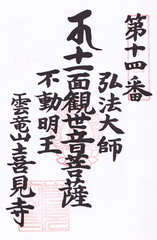 第十四番
弘法大師
十一面観世音菩薩
不動明王
雲竜山喜見寺